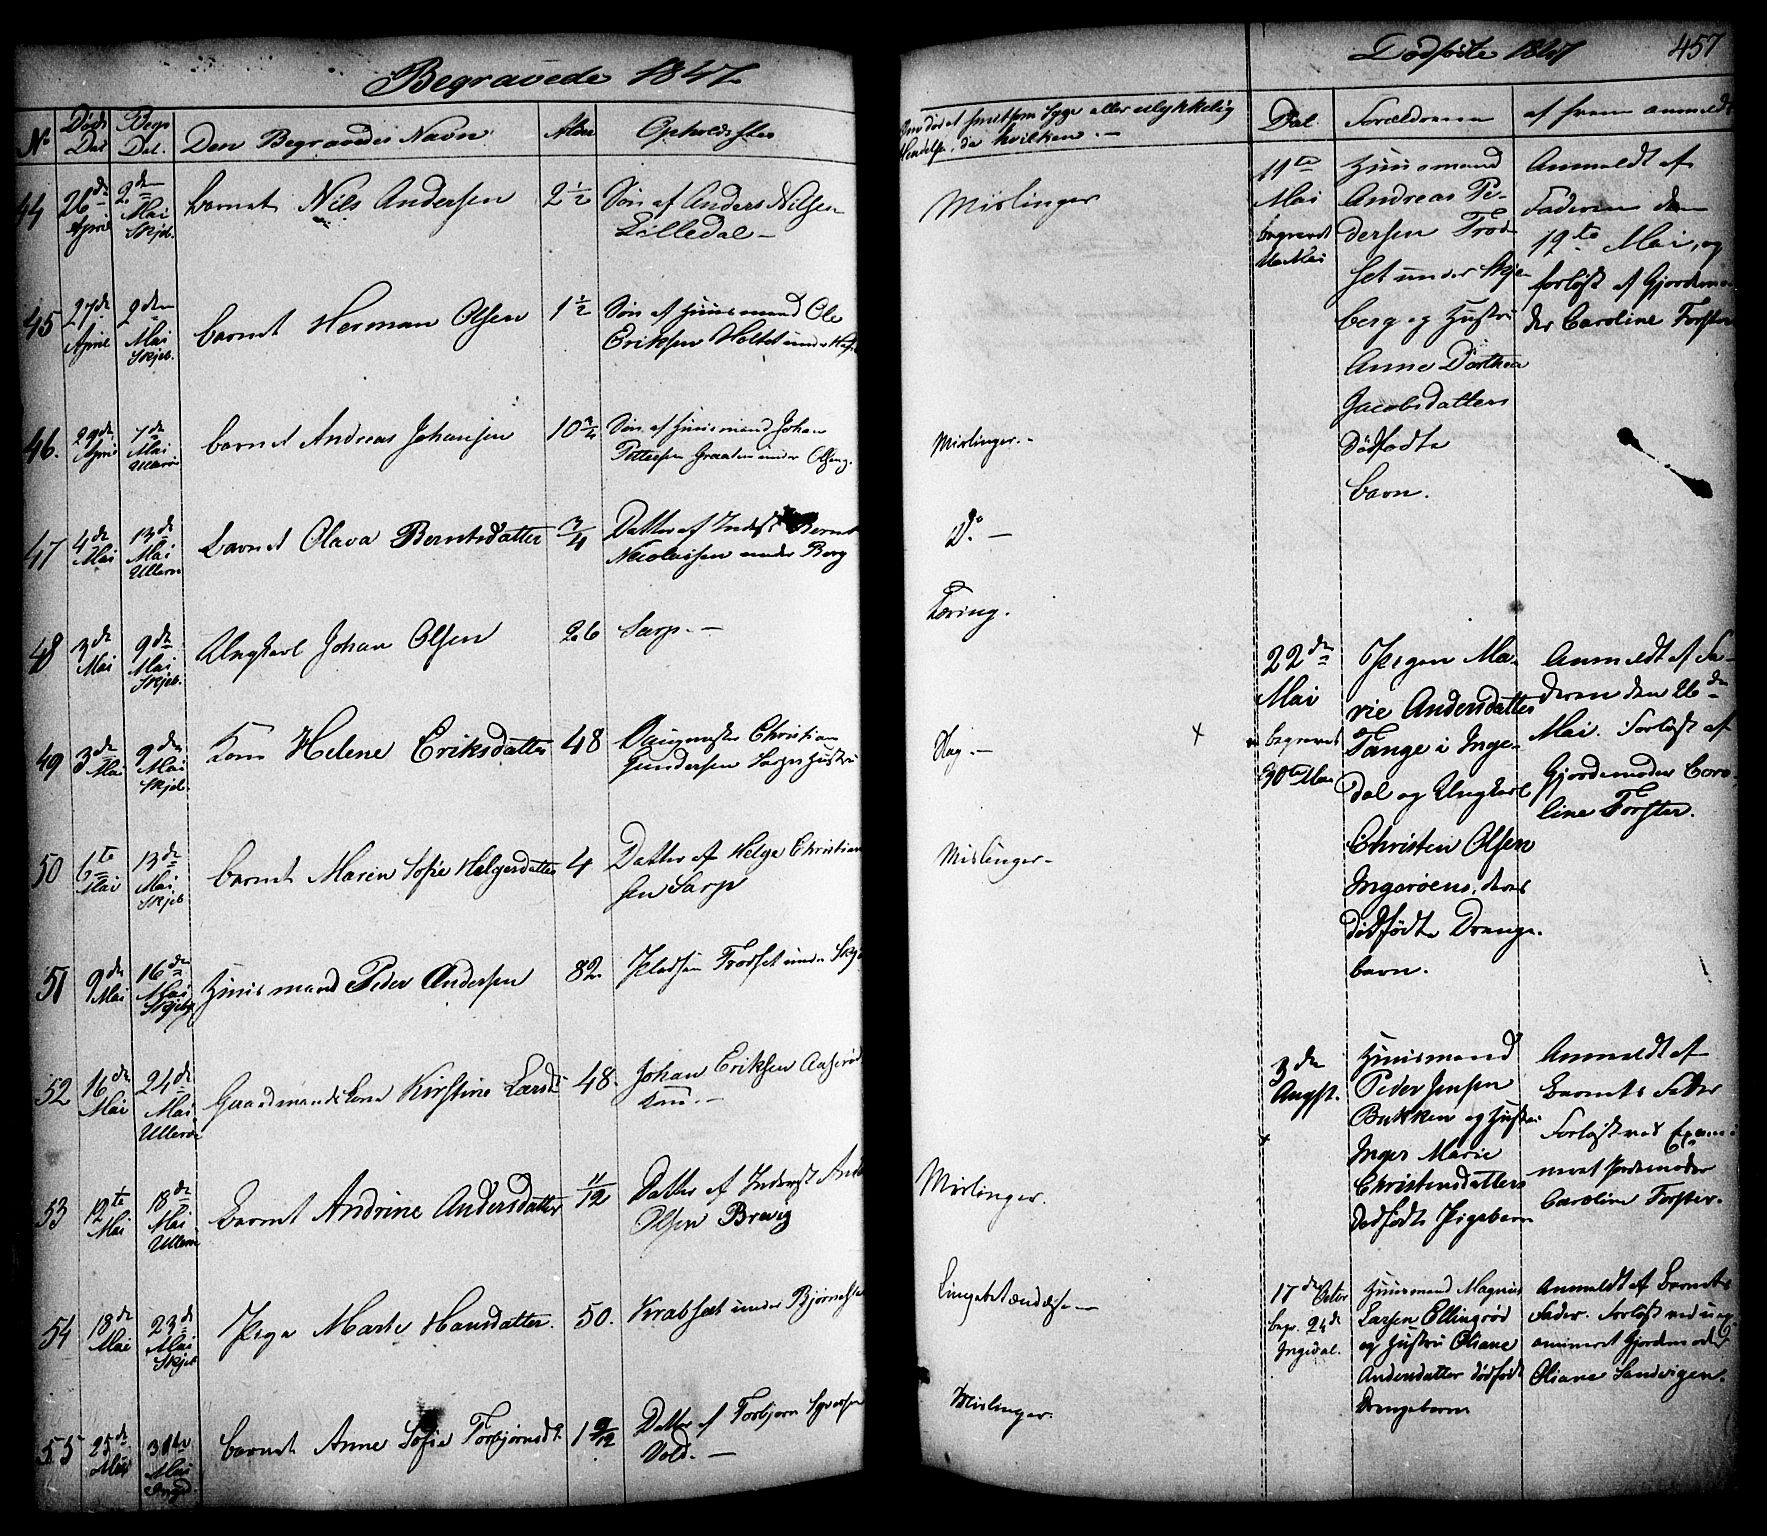 Begravede 1847
No Døds Dat Begr. Dat. Den Begravedes Navn Alder Opholdssted
44 26de April 2den Mai Skjeb. barnet Nils Andersen 2 1/2 Søn af Anders Nilsen
Lilledal —
45 27de April 2den Mai Skjeb. barnet Herman Olsen 1 1/2 Søn af Huusmand Ole
Eriksen Holtet under
46. 29de April 7de Mai Ullerø barnet Andreas Johansen 10 3/4 Søn af Huusmand Johan
Pettersen Graaten under
47 4de Mai 13de Mai Ullerø barnet Olava Berntsdatter 3/4 Datter af Inderst Bernt
Nicolaisen under Berg
48 3de Mai 9de Mai Skjeb. Ungkarl Johan Olsen 26 Sarp. —
49 3de Mai 9de Mai Skjeb. Kone Helene Eriksdatter 48 Christian
Gundersen Sarps Hustru
50 6te Mai 13de Mai Skjeb barnet Maren Sofie Helgesdatter 4 Datter af Helge Christian
sen Sarp
51 9de Mai 16de Mai Skjeb Huusmand Peder Andersen 82 Pladsen Trodset under Skje
52 16de Mai 24de Mai Ullerø Gaardmandskone Kirstine Larsd 48 Johan Eriksen
Kone. —
53 12te Mai 18de Mai Ullerø barnet Andrine Andersdatter 11/12 Datter af Inderst
Olsen Brevig
54 18de Mai 23de Mai Skjeb Pige Marte Hansdatter. 50. Krabset under
55 25de Mai 31te Mai barnet Anne Sofie Torbjørnsdt. 1 9/12 Datter af Torbjørn
Vold. —
Dødfødte 1847 457
Om død af smitsom Syge eller ulykkelig
Hendelse, da hvilken. —
Dat. Forældrene af hvem anmeldt
Mislinger
Mislinger. -
Do. —
Tæring.
—
Mislinger -
Mislinger.
Mislinger.
11te
Mai
begravet
Mai
Huusmand
Andreas Pe-
dersen Trod
set under Skje
berg og Hustru
Anne Dorthea
Jacobsdatters
Dødfødte
barn.
Anmeldt af
Faderen den
19te Mai, og
forløst af Gjordemo
der Caroline Forster
22de
Mai
begravet
30te Mai
Pigen Ma-
rie Andersdatter
Tange i Inge-
dal og Ungkarl
Christen Olsen
Ingerøens, deres
dødfødte Drenge
barn.
Anmeldt af Fa-
deren den 26de
Mai. Forløst af
Gjordemoder Caro-
line Forster.
3de
Augst.
Huusmand
Peder Jensen
Bukken og Hustru
Inger Marie
Christensdatters
dødfødte Pigebarn
Anmeldt af
Barnets Fader
Forløst ved Exami
neret Jordemoder
Caroline Forster.
17de Octbr
begr. 24de
Ingedal.
Huusmand Magnus
Larsen Ellingrød
og Hustru Oliane
Andersdatter dødfødt
Drengebarn
Anmeldt af Barnets
Fader. Forløst ved uex
amineret Gjordmoder
Oliane Sandvigen.